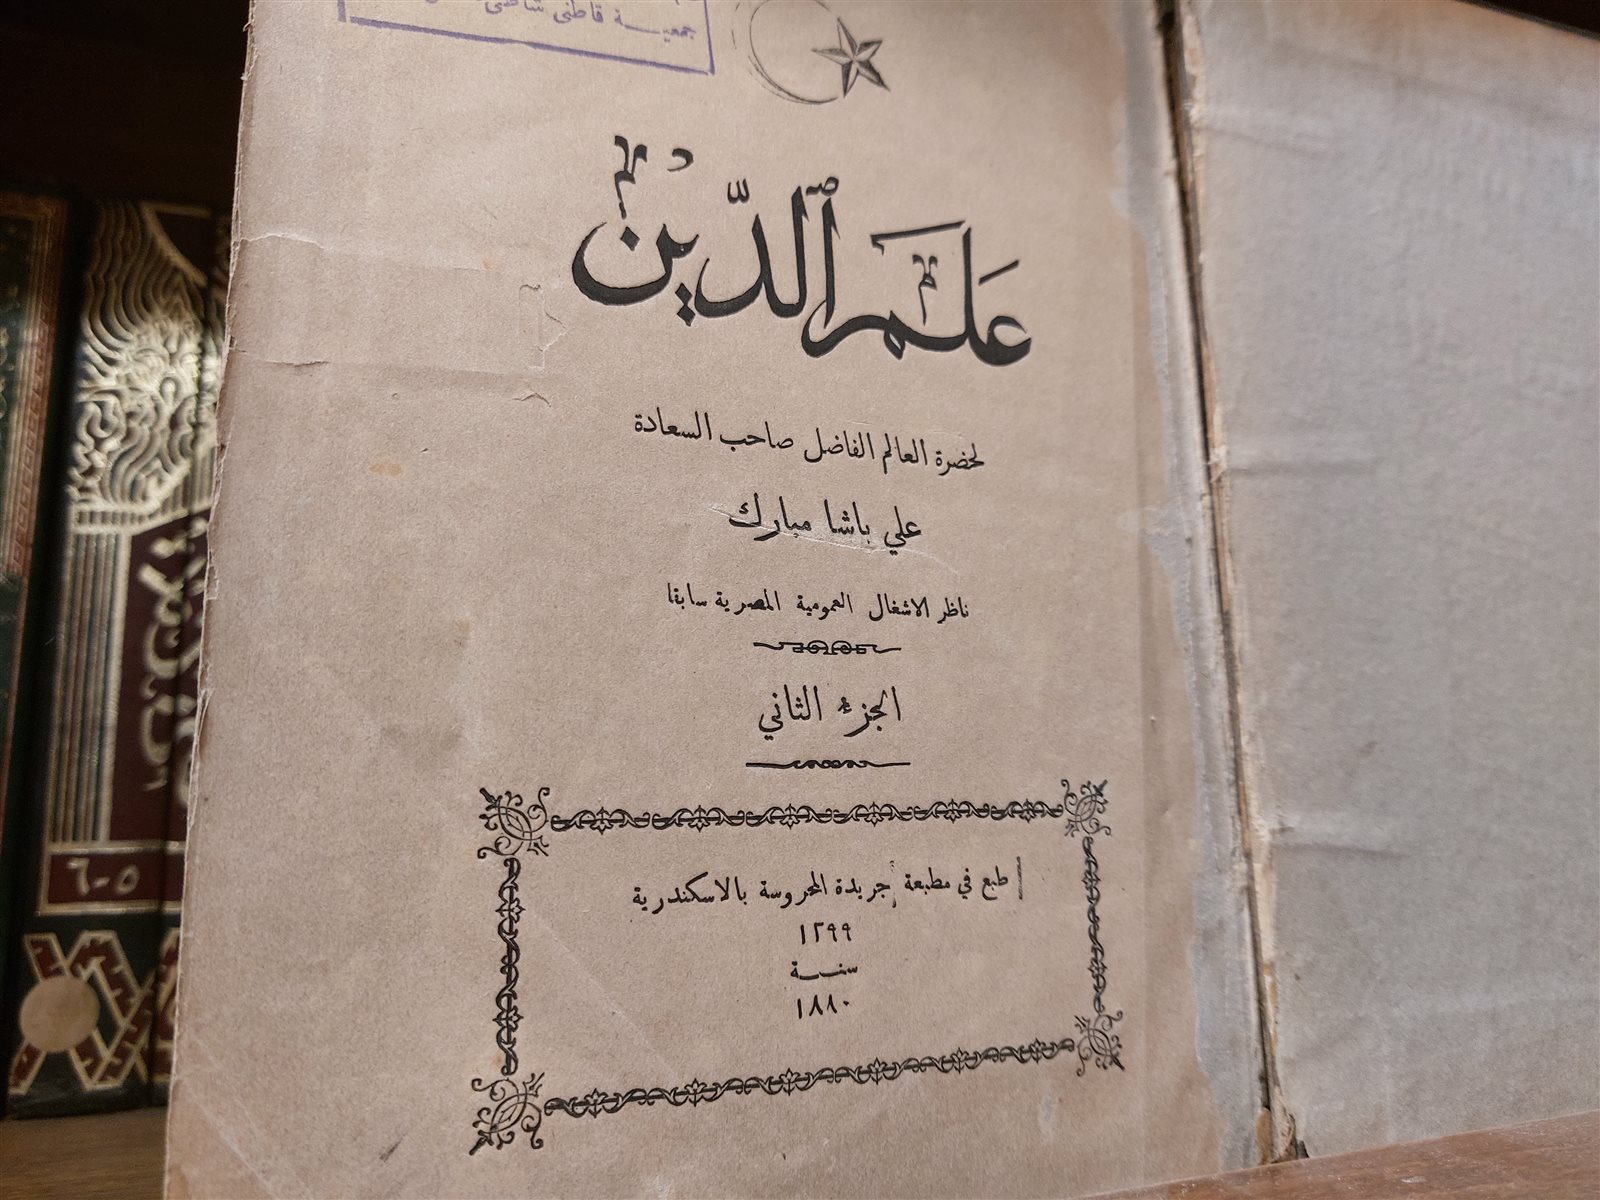 جمعية قاطني شاطئ
عَلَمُ ٱلدِّيْن
لحضرة العالم الفاضل صاحب السعادة
علي باشا مبارك
ناظر الاشغال العمومية المصرية سابقا
الجزء الثاني
طبع في مطبعة جريدة المحروسة بالاسكندرية
١٢٩٩
سنة
١٨٨٠
٥-٦